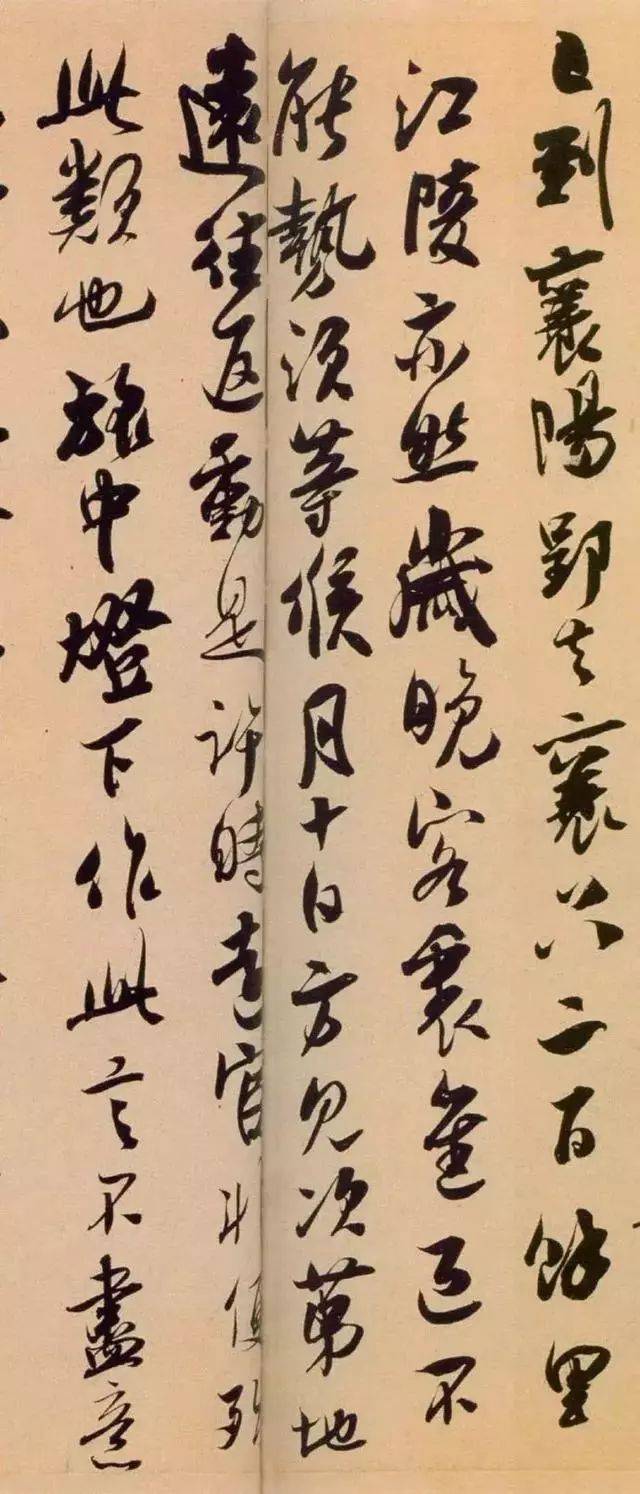 日到襄陽郢去襄只二百餘里
江陵亦然歲晚客裏進退不
能勢須等候月十日方見次第地
遠往返動是許時遠官非便殆
此類也旅中燈下作此言不盡意